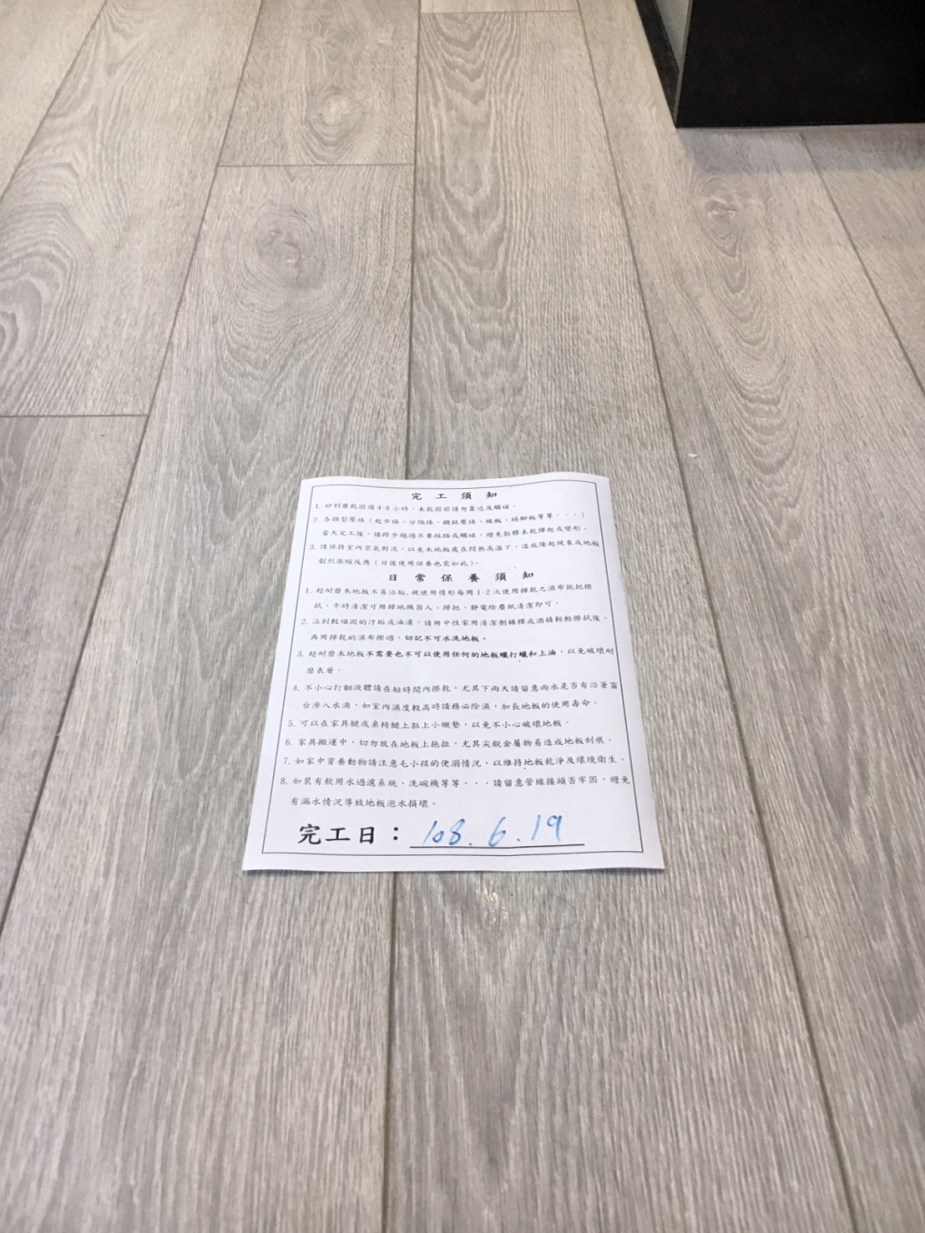 完工須知
1. 矽利康乾固須4-8小時，未乾固前請勿靠近及觸碰。
2. 各類型壓條（起步條、分隔條、鋼鈦壓條、線板、踢腳板等等・・・）
當天完工後，請跨步越過不要踩踏或觸碰，避免黏膠未乾彈起或變形。
3. 請保持室內空氣對流，以免木地板處在悶熱高溫下，造成隆起現象或地板
劇烈漲縮反應（日後使用保養也需如此）。
日常保養須知
1. 超耐磨木地板不易沾垢，視使用情形每周1-2次使用擰乾之濕布拖把擦
拭，平時清潔可用掃地機器人、掃把、靜電除塵紙清潔即可。
2. 沾到較頑固的汙垢或油漬，請用中性家用清潔劑稀釋或酒精輕輕擦拭後，
再用擰乾的濕布擦過，切記不可水洗地板。
3. 超耐磨木地板不需要也不可以使用任何的地板蠟打蠟和上油，以免破壞耐
磨表層。
4. 不小心打翻液體請在短時間內擦乾，尤其下雨天請留意雨水是否有沿著窗
台滲入水滴，如室內濕度較高時請務必除濕，加長地板的使用壽命。
5. 可以在家具腿或桌椅腿上黏上小襯墊，以免不小心破壞地板。
6. 家具搬運中，切勿放在地板上拖拉，尤其尖銳金屬物易造成地板刮痕。
7. 如家中育養動物請注意毛小孩的便溺情況，以維持地板乾淨及環境衛生。
8. 如裝有飲用水過濾系統、洗碗機等等・・・請留意管線接頭否牢固，避免
有漏水情況導致地板泡水損壞。
完工日：108.6.19